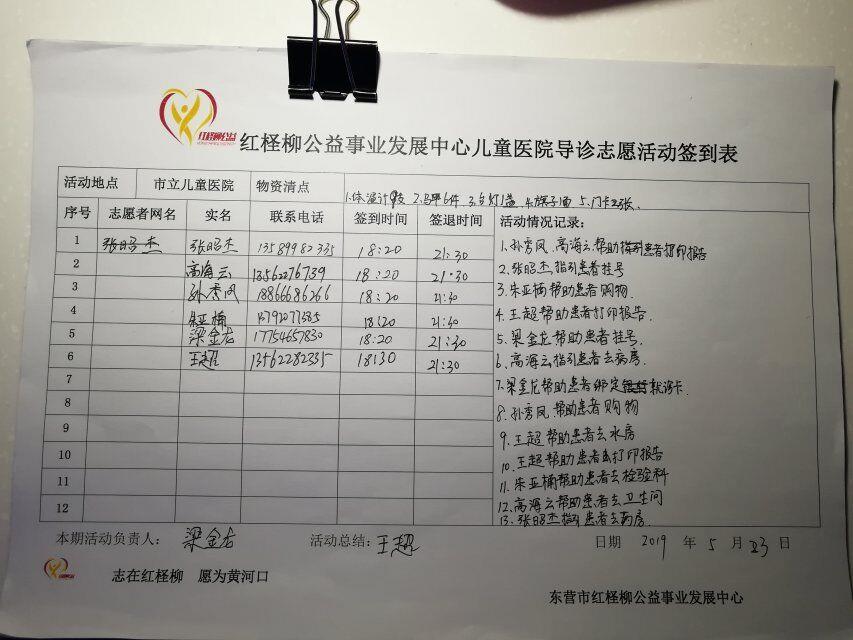 红柽柳公益
红柽柳公益事业发展中心儿童医院导诊志愿活动签到表
活动地点 市立儿童医院 物资清点 1.体温计 2.马甲6件 3.台灯1盏 4.旗子1面 5.门卡2张.
序号 志愿者网名 实名 联系电话 签到时间 签退时间 活动情况记录:
1 张昭杰 张昭杰 13589982335 18:20 21:30
2 高海云 13562276739 18:20 21:30
3 孙秀凤 18866686266 18:20 21:30
4 朱亚楠 18:20 21:30
5 梁金龙 17754657830 18:20 21:30
6 王超 13562282335 18:30 21:30
7
8
9
10
11
12
1.孙秀凤、高海云帮助指引患者打印报告
2.张昭杰指引患者挂号
3.朱亚楠帮助患者购物.
4.王超帮助患者打印报告.
5.梁金龙帮助患者挂号.
6.高海云指引患者去病房.
7.梁金龙帮助患者绑定就诊卡
8.孙秀凤帮助患者购物
9.王超帮助患者去水房
10.王超帮助患者打印报告
11.朱亚楠帮助患者去检验科
12.高海云帮助患者去卫生间
13.张昭杰指引患者去药房.
本期活动负责人: 梁金龙 活动总结: 王超 日期 2019 年 5 月 23 日
志在红柽柳 愿为黄河口
东营市红柽柳公益事业发展中心